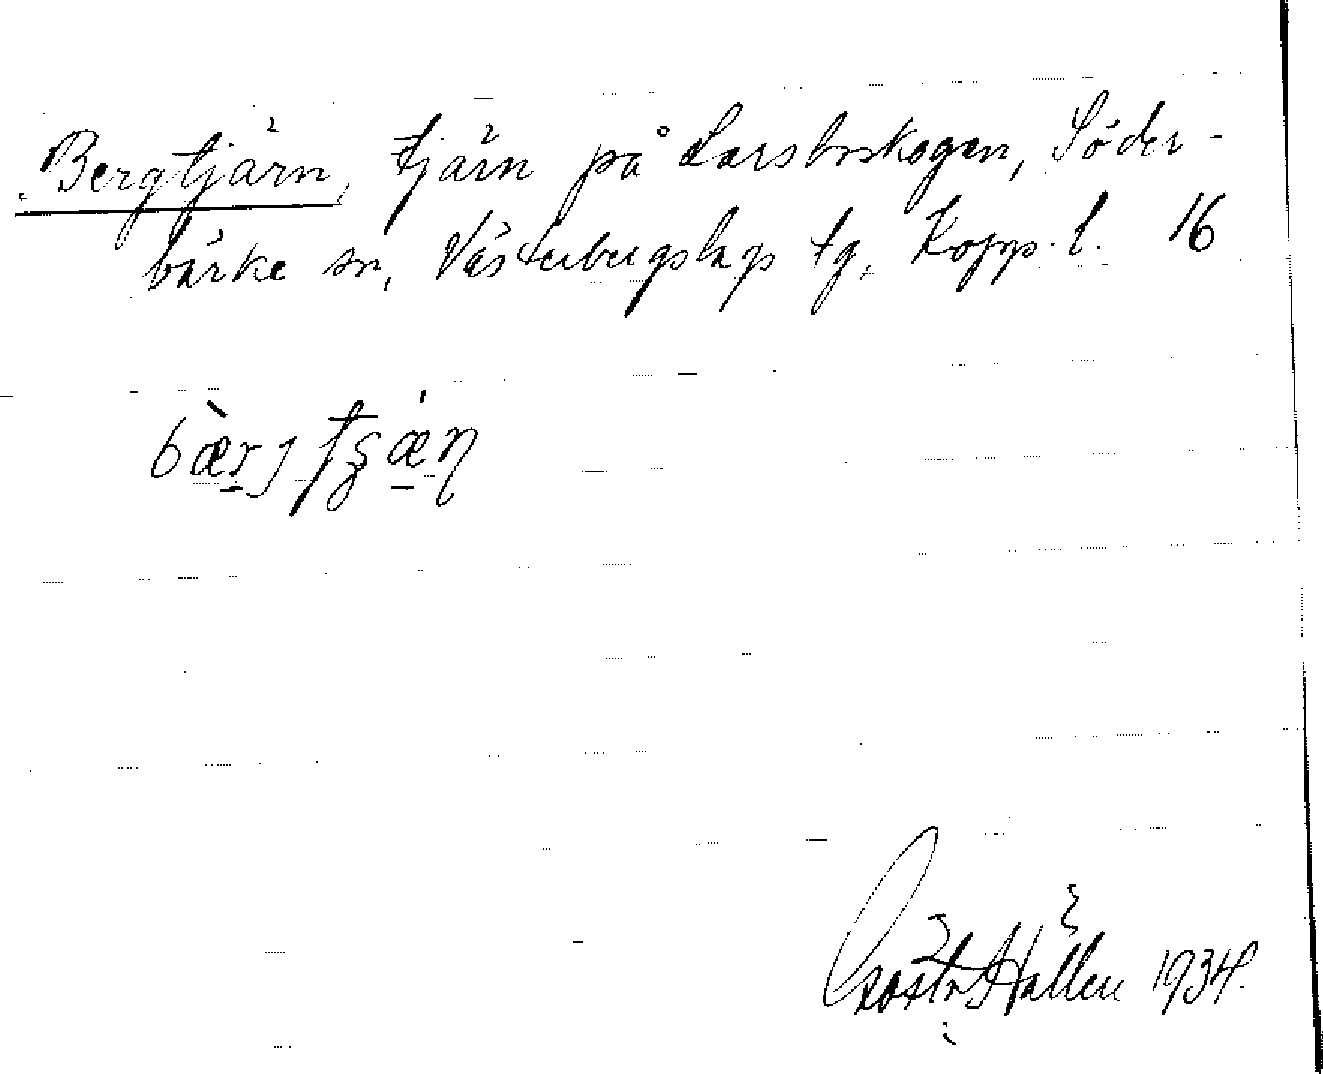 Bergtjärn, tjärn på Larsboskogen, Söder-
bärke sn, Västerbergslags tg, Kopp. l. 16
bæ̀rj tʂæ̇ɳ
Gösta Hallén 1934.